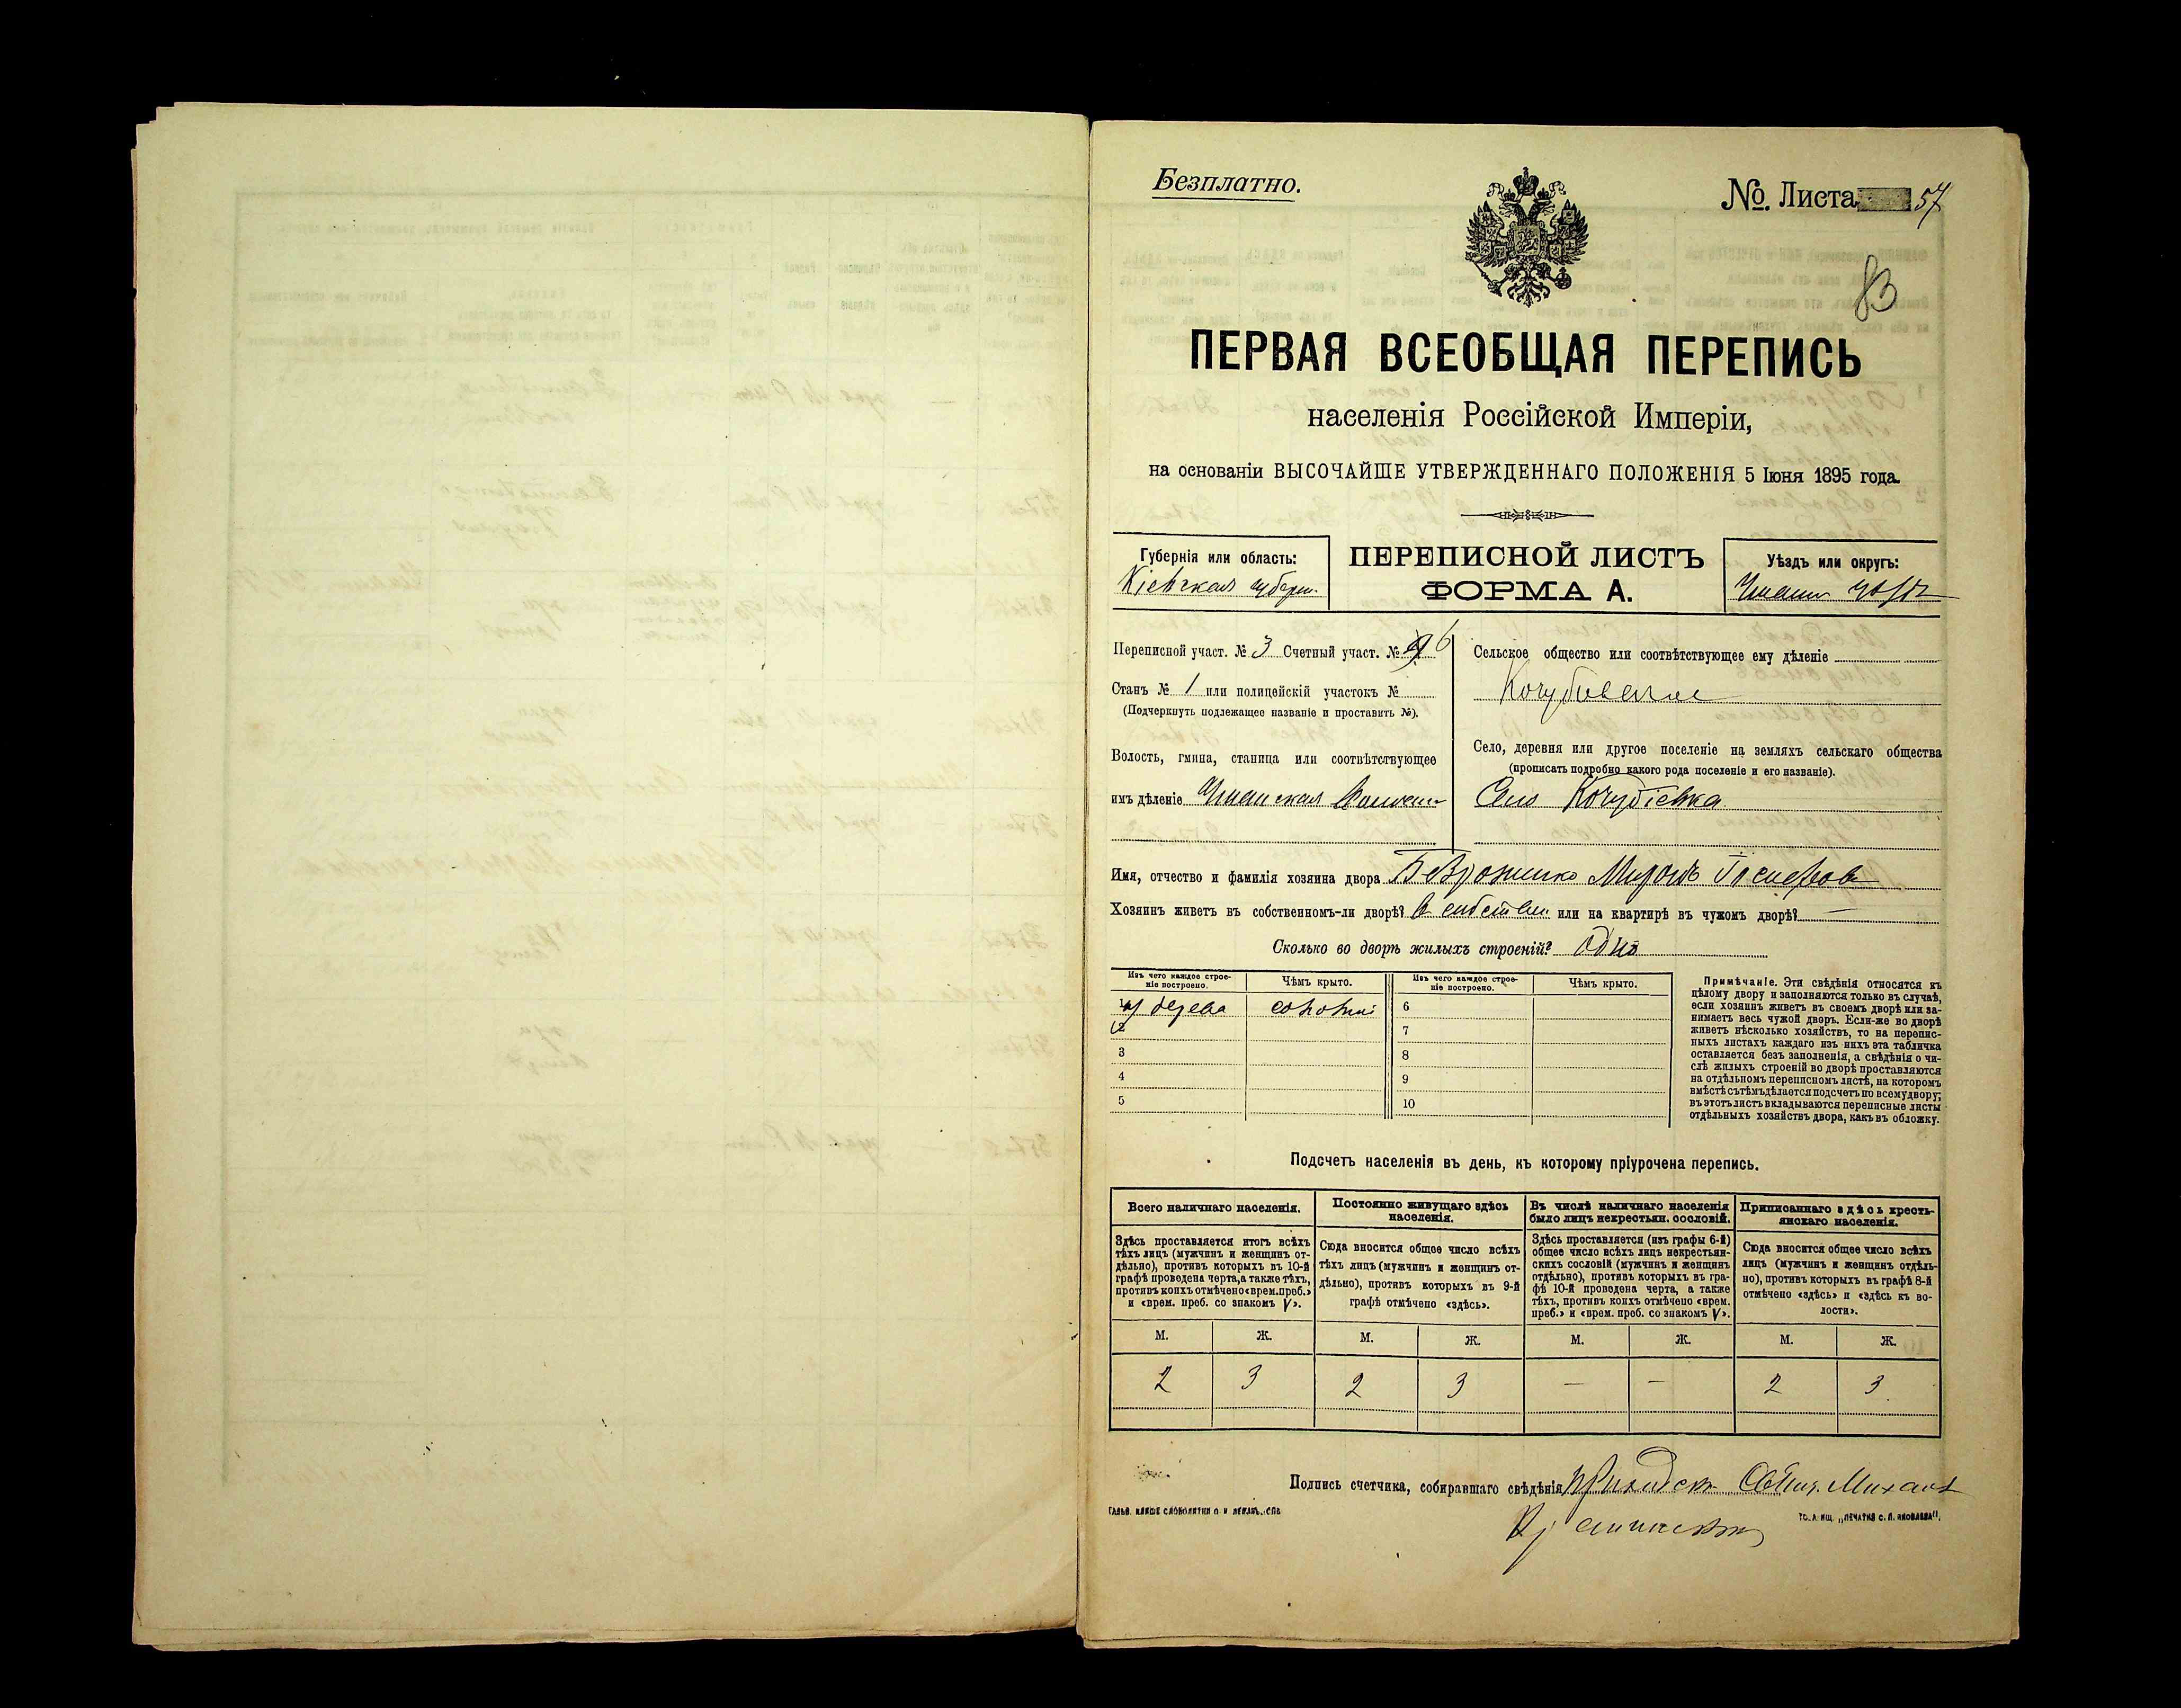 Безплатно.
№. Листа 57
83
ПЕРВАЯ ВСЕОБЩАЯ ПЕРЕПИСЬ
населенія Россійской Имперіи,
на основаніи ВЫСОЧАЙШЕ УТВЕРЖДЕННАГО ПОЛОЖЕНІЯ 5 Іюня 1895 года.
Губернія или область:
Кіевская губерн.
ПЕРЕПИСНОЙ ЛИСТЪ
ФОРМА А.
Уѣздъ или округъ:
Уманск уѣздъ
Переписной участ. № 3 Счетный участ. № 6
Станъ № 1 или полицейскій участокъ №
(Подчеркнуть подлежащее названіе и проставить №).
Волость, гмина, станица или соотвѣтствующее
имъ дѣленіе Уманская
Сельское общество или соотвѣтствующее ему дѣленіе
Кочубіевское
Село, деревня или другое поселеніе на земляхъ сельскаго общества
(прописать подробно какого рода поселеніе и его названіе).
Село Кочубіевка
Имя, отчество и фамилія хозяина двора Миронъ
Хозяинъ живетъ въ собственномъ-ли дворѣ? в собствен или на квартирѣ въ чужомъ дворѣ? —
Сколько во дворѣ жилыхъ строеній? Одно
Изъ чего каждое строе-
ніе построено.
Чѣмъ крыто.
Изъ чего каждое строе-
ніе построено.
Чѣмъ крыто.
1 из дерева соломой 6
2 7
3 8
4 9
5 10
Примѣчаніе. Эти свѣдѣнія относятся къ
цѣлому двору и заполняются только въ случаѣ,
если хозяинъ живетъ въ своемъ дворѣ или за-
нимаетъ весь чужой дворъ. Если-же во дворѣ
живетъ нѣсколько хозяйствъ, то на перепис-
ныхъ листахъ каждаго изъ нихъ эта табличка
оставляется безъ заполненія, а свѣдѣнія о чи-
слѣ жилыхъ строеній во дворѣ проставляются
на отдѣльномъ переписномъ листѣ, на которомъ
вмѣстѣ съ тѣмъ дѣлается подсчетъ по всему двору;
въ этотъ листъ вкладываются переписные листы
отдѣльныхъ хозяйствъ двора, какъ въ обложку.
Подсчетъ населенія въ день, къ которому пріурочена перепись.
Всего наличнаго населенія.
Здѣсь проставляется итогъ всѣхъ
тѣхъ лицъ (мужчинъ и женщинъ от-
дѣльно), противъ которыхъ въ 10-й
графѣ проведена черта, а также тѣхъ,
противъ коихъ отмѣчено «врем. преб.»
и «врем. преб. со знакомъ V».
Постоянно живущаго здѣсь
населенія.
Сюда вносится общее число всѣхъ
тѣхъ лицъ (мужчинъ и женщинъ от-
дѣльно), противъ которыхъ въ 9-й
графѣ отмѣчено «здѣсь».
Въ числѣ наличнаго населенія
было лицъ некрестьян. сословій.
Здѣсь проставляется (изъ графы 6-й)
общее число всѣхъ лицъ некрестьян-
скихъ сословій (мужчинъ и женщинъ
отдѣльно), противъ которыхъ въ гра-
фѣ 10-й проведена черта, а также
тѣхъ, противъ коихъ отмѣчено «врем.
преб.» и «врем. преб. со знакомъ V».
Приписаннаго здѣсь кресть-
янскаго населенія.
Сюда вносится общее число всѣхъ
лицъ (мужчинъ и женщинъ отдѣль-
но), противъ которыхъ въ графѣ 8-й
отмѣчено «здѣсь» и «здѣсь къ во-
лости».
М. Ж. М. Ж. М. Ж. М. Ж.
2 3 2 3 — — 2 3
Подпись счетчика, собиравшаго свѣдѣнія Михаил
ТО-А ИЩ. „ПЕЧАТНЯ С. П. ЯКОВЛЕВА“.